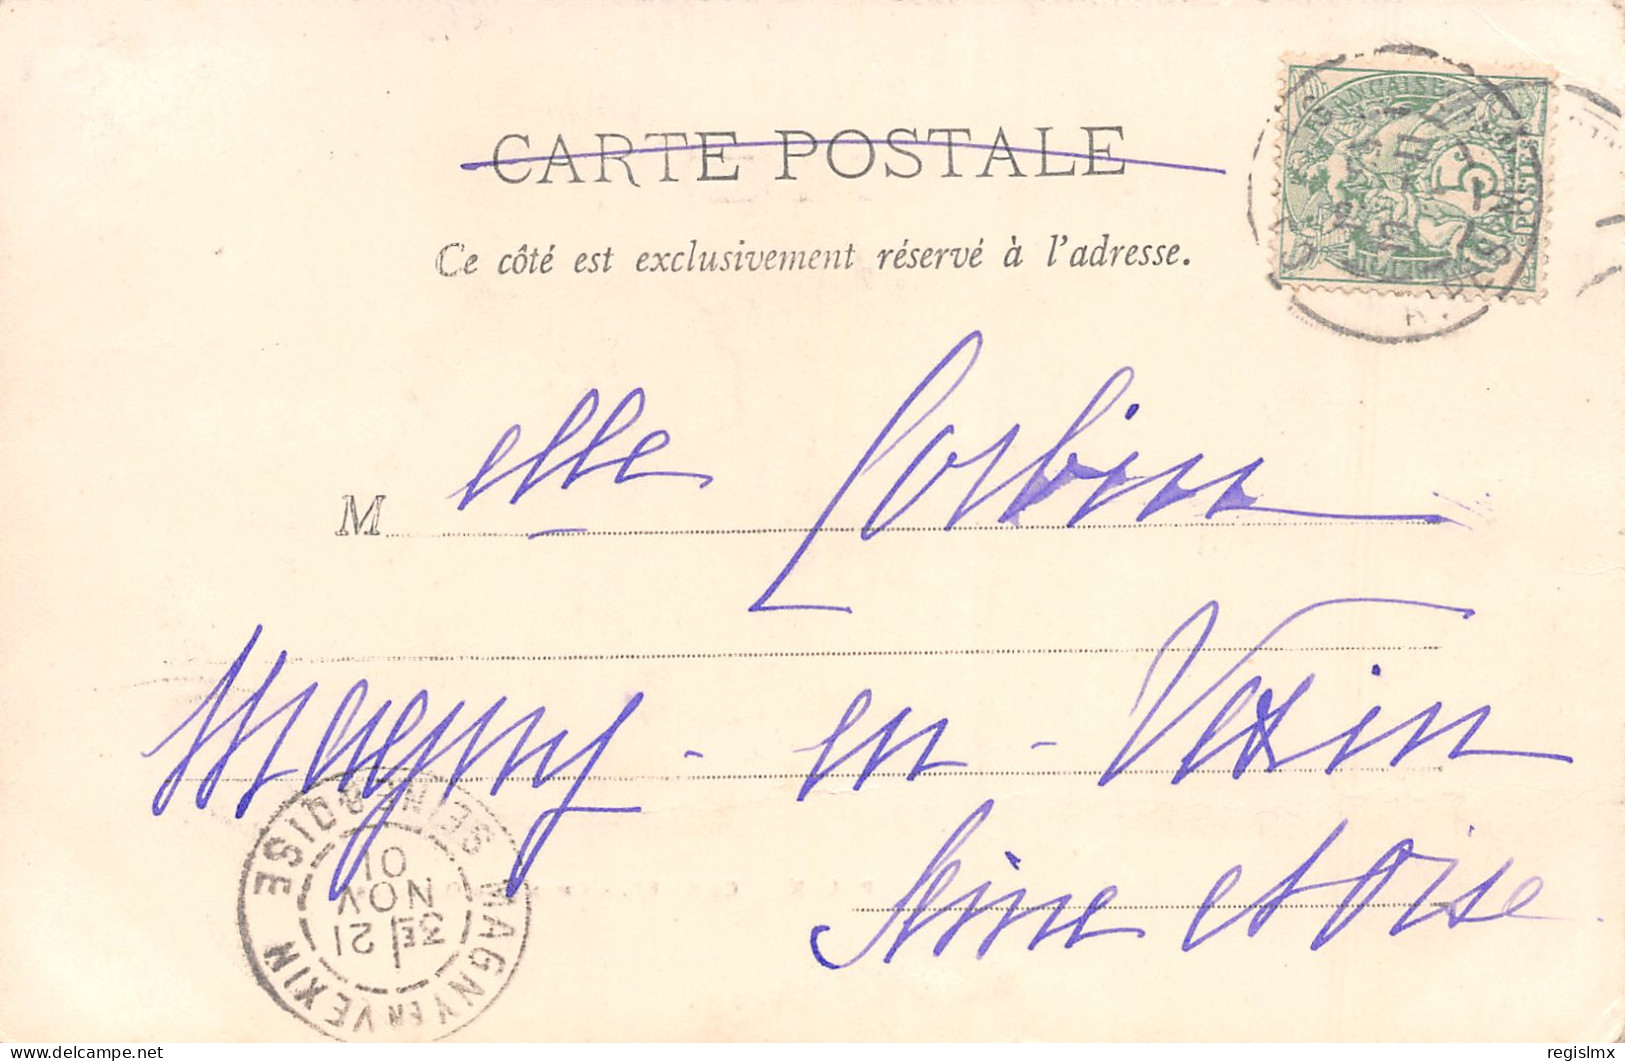 CARTE POSTALE
Ce côté est exclusivement réservé à l'adresse.
FRANÇAISE
5
POSTES
M elle Corbin
Magny - en - Vexin
Seine et Oise
MAGNY EN VEXIN SEINE & OISE
3E 21
NOV
01
delcampe.net
regislmx